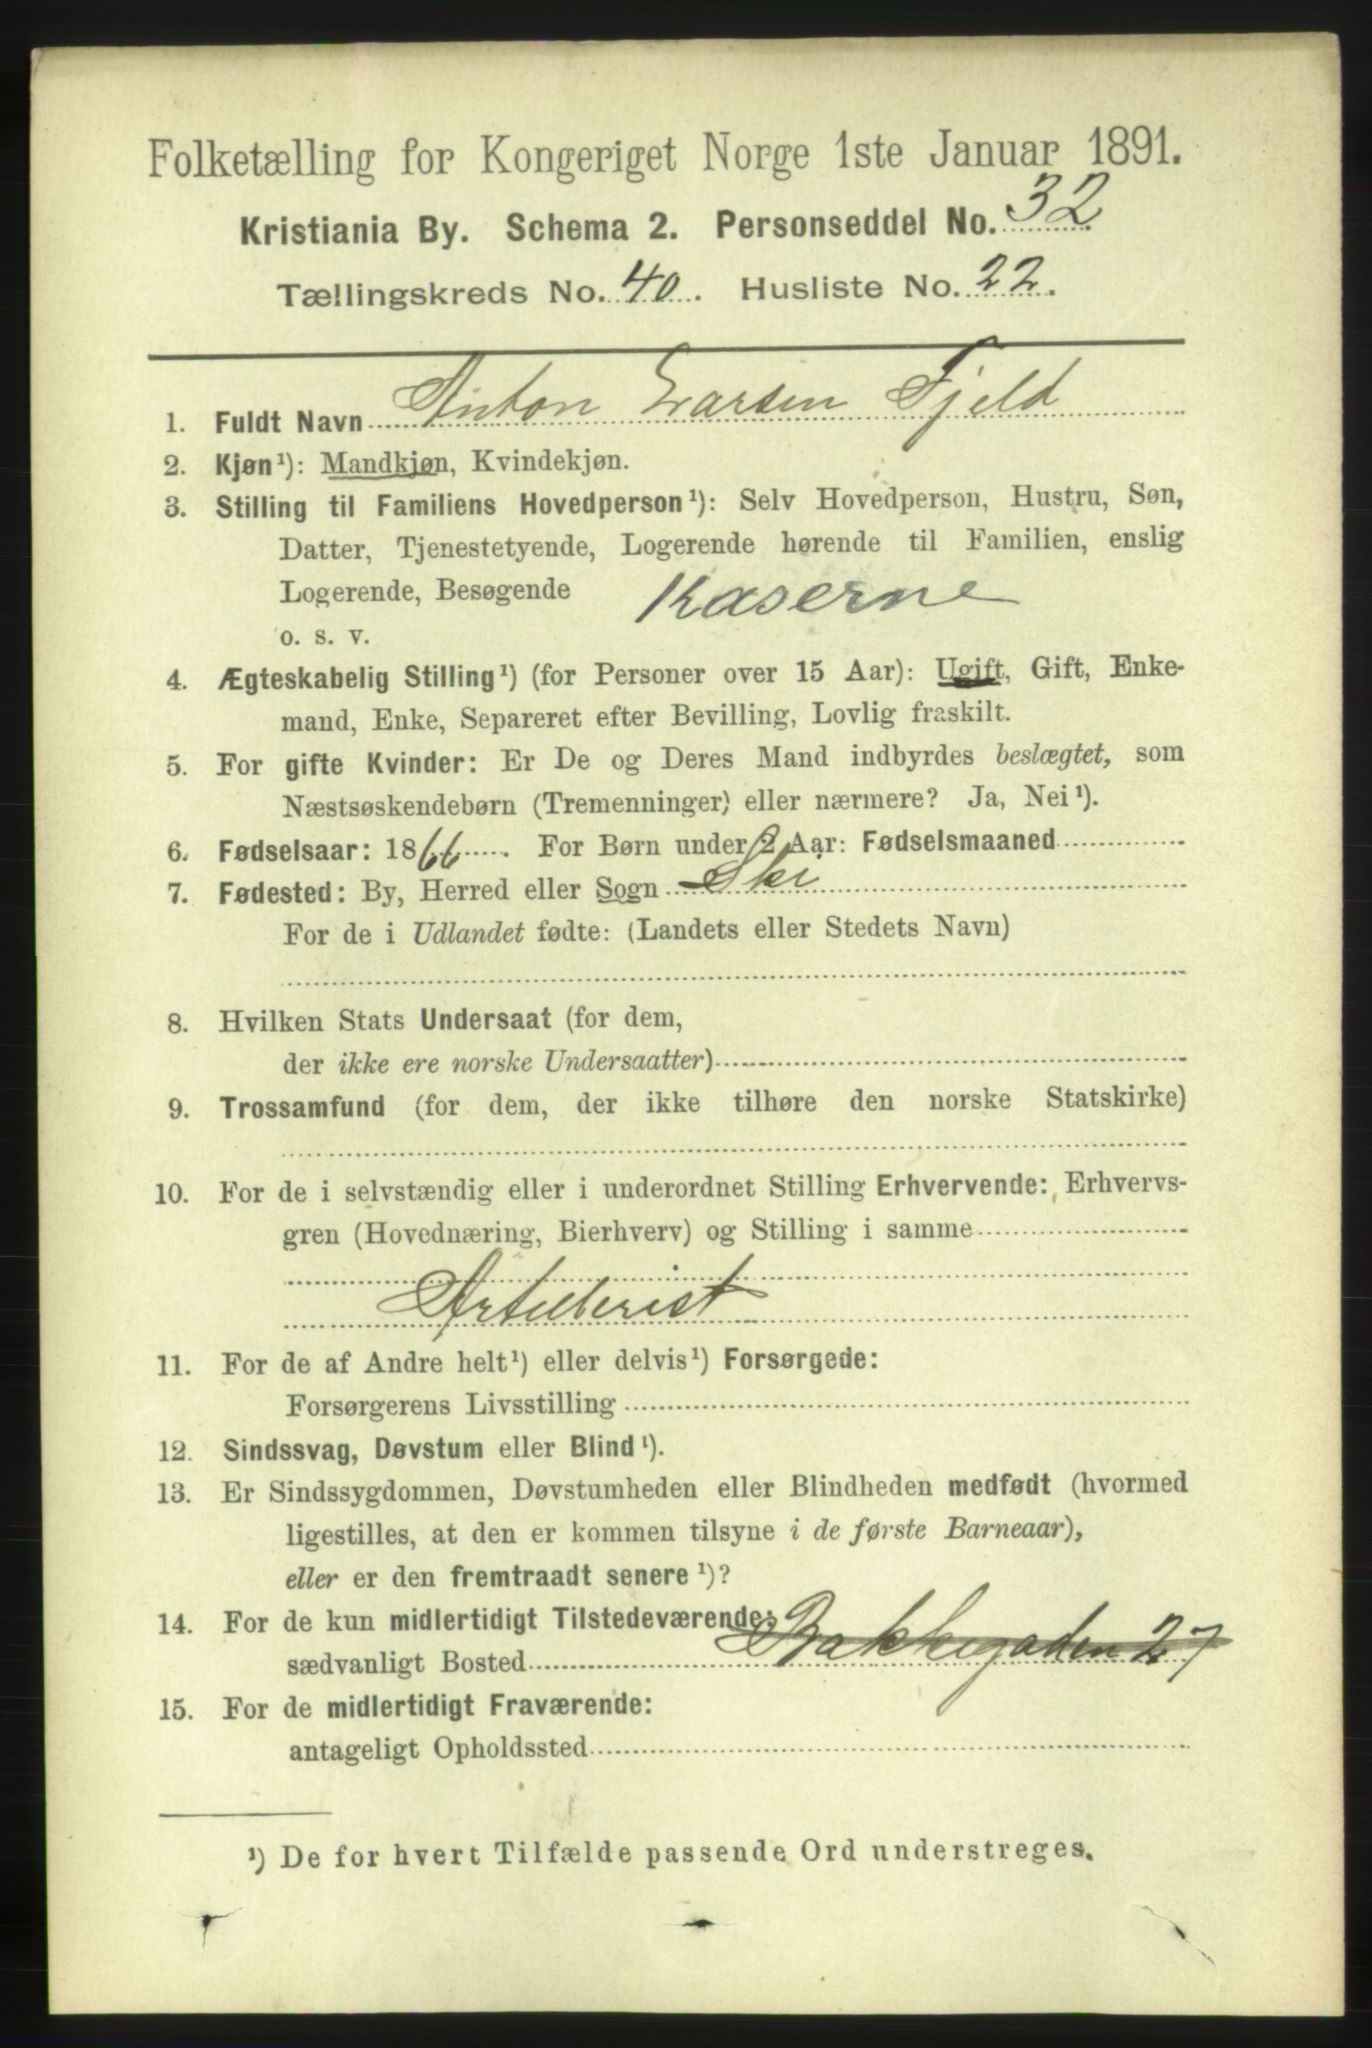 Folketælling for Kongeriget Norge 1ste Januar 1891.
Kristiania By. Schema 2. Personseddel No. 32
Tællingskreds No. 40. Husliste No. 22.
1. Fuldt Navn Anton Larsen Fjeld
2. Kjøn¹): Mandkjøn, Kvindekjøn.
3. Stilling til Familiens Hovedperson¹): Selv Hovedperson, Hustru, Søn,
Datter, Tjenestetyende, Logerende hørende til Familien, enslig
Logerende, Besøgende Kaserne
o. s. v.
4. Ægteskabelig Stilling¹) (for Personer over 15 Aar): Ugift, Gift, Enke-
mand, Enke, Separeret efter Bevilling, Lovlig fraskilt.
5. For gifte Kvinder: Er De og Deres Mand indbyrdes beslægtet, som
Næstsøskendebørn (Tremenninger) eller nærmere? Ja, Nei¹).
6. Fødselsaar: 1866. For Børn under 2 Aar: Fødselsmaaned
7. Fødested: By, Herred eller Sogn Ski
For de i Udlandet fødte: (Landets eller Stedets Navn)
8. Hvilken Stats Undersaat (for dem,
der ikke ere norske Undersaatter)
9. Trossamfund (for dem, der ikke tilhøre den norske Statskirke)
10. For de i selvstændig eller i underordnet Stilling Erhvervende: Erhvervs-
gren (Hovednæring, Bierhverv) og Stilling i samme
Artillerist
11. For de af Andre helt¹) eller delvis¹) Forsørgede:
Forsørgerens Livsstilling
12. Sindssvag, Døvstum eller Blind¹).
13. Er Sindssygdommen, Døvstumheden eller Blindheden medfødt (hvormed
ligestilles, at den er kommen tilsyne i de første Barneaar),
eller er den fremtraadt senere¹)?
14. For de kun midlertidigt Tilstedeværende:
sædvanligt Bosted Bakkegaden 27
15. For de midlertidigt Fraværende:
antageligt Opholdssted
¹) De for hvert Tilfælde passende Ord understreges.